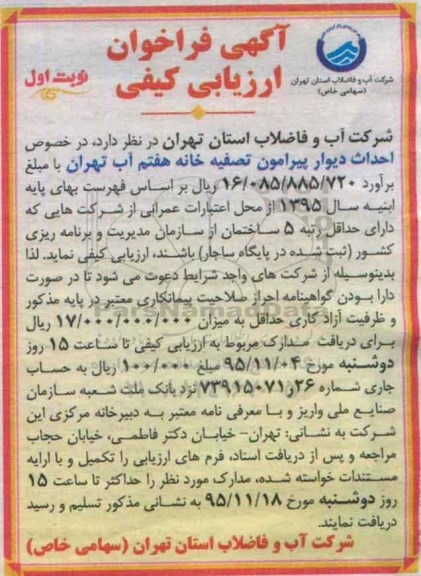 آگهی فراخوان
ارزیابی کیفی
نوبت اول
شرکت آب و فاضلاب استان تهران
(سهامی خاص)
شرکت آب و فاضلاب استان تهران در نظر دارد، در خصوص
احداث دیوار پیرامون تصفیه خانه هفتم آب تهران با مبلغ
برآورد ۱۶/۰۸۵/۸۸۵/۷۲۰ ریال بر اساس فهرست بهای پایه
ابنیه سال ۱۳۹۵ از محل اعتبارات عمرانی از شرکت هایی که
دارای حداقل رتبه ۵ ساختمان از سازمان مدیریت و برنامه ریزی
کشور (ثبت شده در پایگاه ساجار) باشند، ارزیابی کیفی نماید. لذا
بدینوسیله از شرکت های واجد شرایط دعوت می شود تا در صورت
دارا بودن گواهینامه احراز صلاحیت پیمانکاری معتبر در پایه مذکور
و ظرفیت آزاد کاری حداقل به میزان ۱۷/۰۰۰/۰۰۰/۰۰۰ ریال
برای دریافت مدارک مربوط به ارزیابی کیفی تا ساعت ۱۵ روز
دوشنبه مورخ ۹۵/۱۱/۰۴ مبلغ ۱۰۰/۰۰۰ ریال به حساب
جاری شماره ۲۶ر۷۳۹۱۵۰۷۱ نزد بانک ملت شعبه سازمان
صنایع ملی واریز و با معرفی نامه معتبر به دبیرخانه مرکزی این
شرکت به نشانی: تهران- خیابان دکتر فاطمی، خیابان حجاب
مراجعه و پس از دریافت اسناد، فرم های ارزیابی را تکمیل و با ارایه
مستندات خواسته شده، مدارک مورد نظر را حداکثر تا ساعت ۱۵
روز دوشنبه مورخ ۹۵/۱۱/۱۸ به نشانی مذکور تسلیم و رسید
دریافت نمایند.
شرکت آب و فاضلاب استان تهران (سهامی خاص)